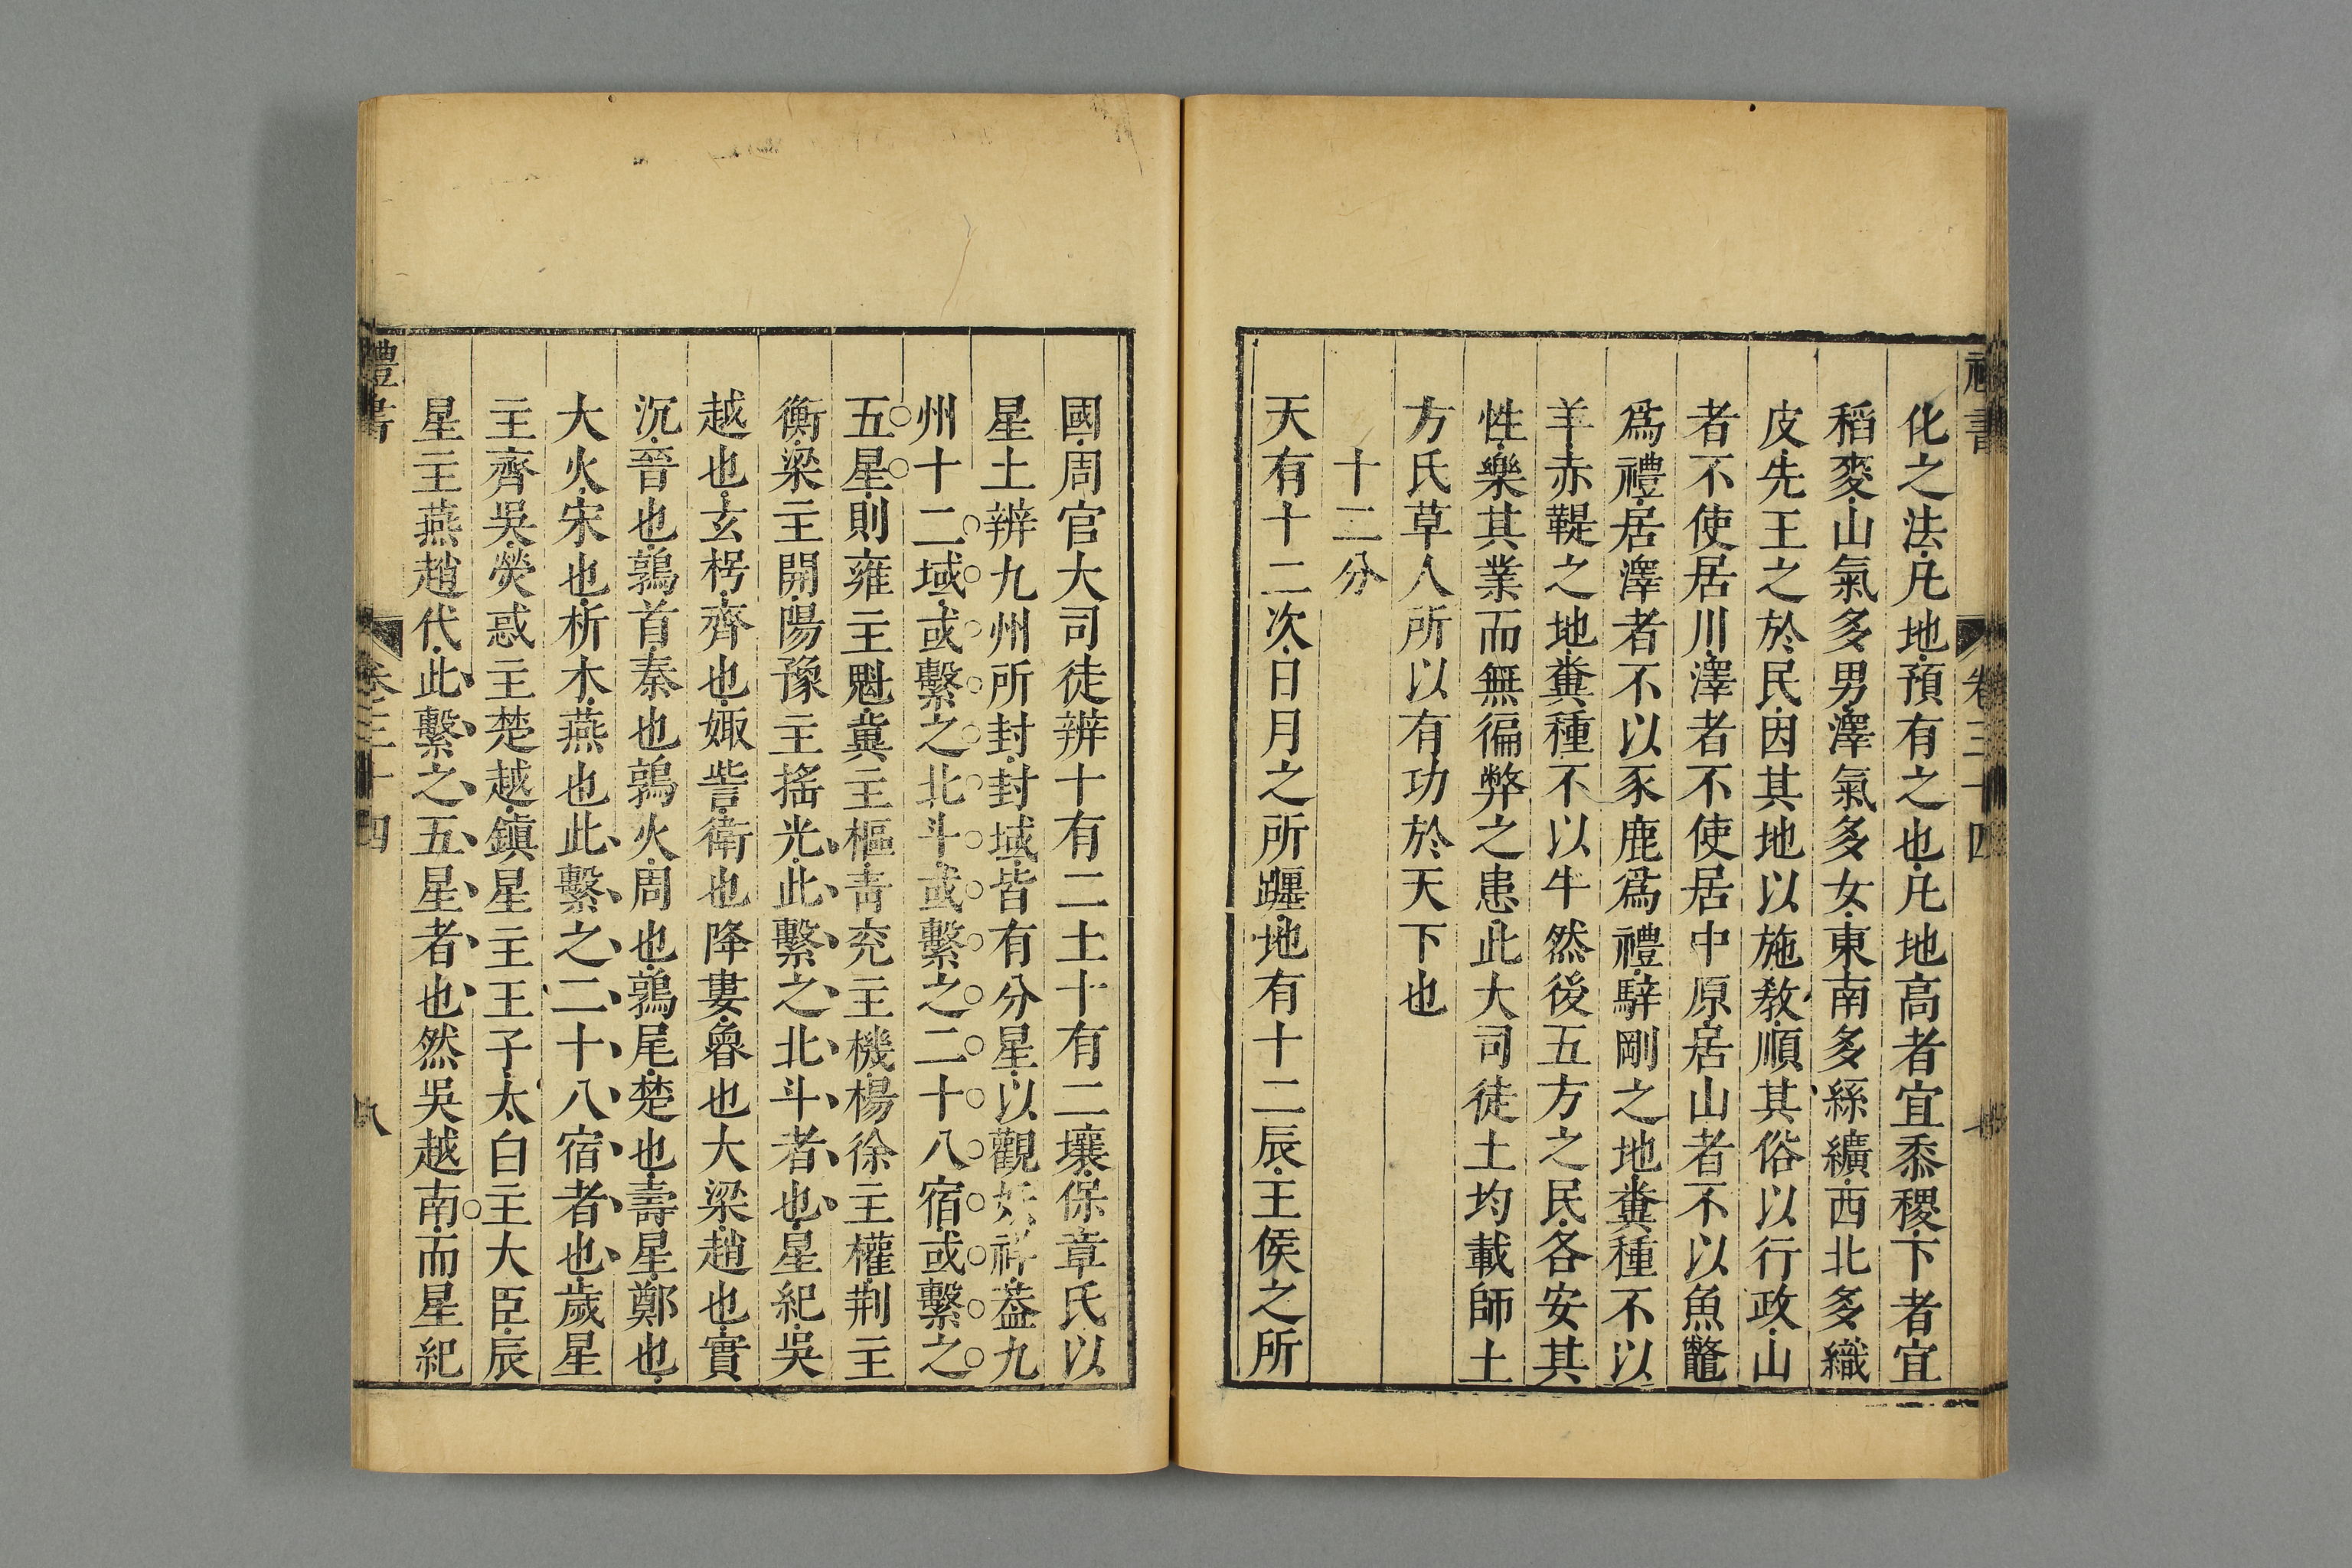 禮書
卷三十四
化之法凡地預有之也凡地高者宜黍稷下者宜
稻麥山氣多男澤氣多女東南多絲纊西北多織
皮先王之於民因其地以施教順其俗以行政山
者不使居川澤者不使居中原居山者不以魚鼈
爲禮居澤者不以豕鹿爲禮騂剛之地糞種不以
羊赤鞮之地糞種不以牛然後五方之民各安其
性樂其業而無徧弊之患此大司徒土均載師土
方氏草人所以有功於天下也
十二分
天有十二次日月之所躔地有十二辰王侯之所
國周官大司徒辨十有二土十有二壤保章氏以
星土辨九州所封封域皆有分星以觀妖祥葢九
州十二域或繫之北斗或繫之二十八宿或繫之
五星則雍主魁冀主樞青兖主機楊徐主權荆主
衡梁主開陽豫主搖光此繫之北斗者也星紀吳
越也玄枵齊也娵訾衛也降婁魯也大梁趙也實
沉晉也鶉首秦也鶉火周也鶉尾楚也壽星鄭也
大火宋也析木燕也此繫之二十八宿者也歲星
主齊吳熒惑主楚越鎭星主王子太白主大臣辰
星主燕趙代此繫之五星者也然吳越南而星紀
禮書
卷三十四
八